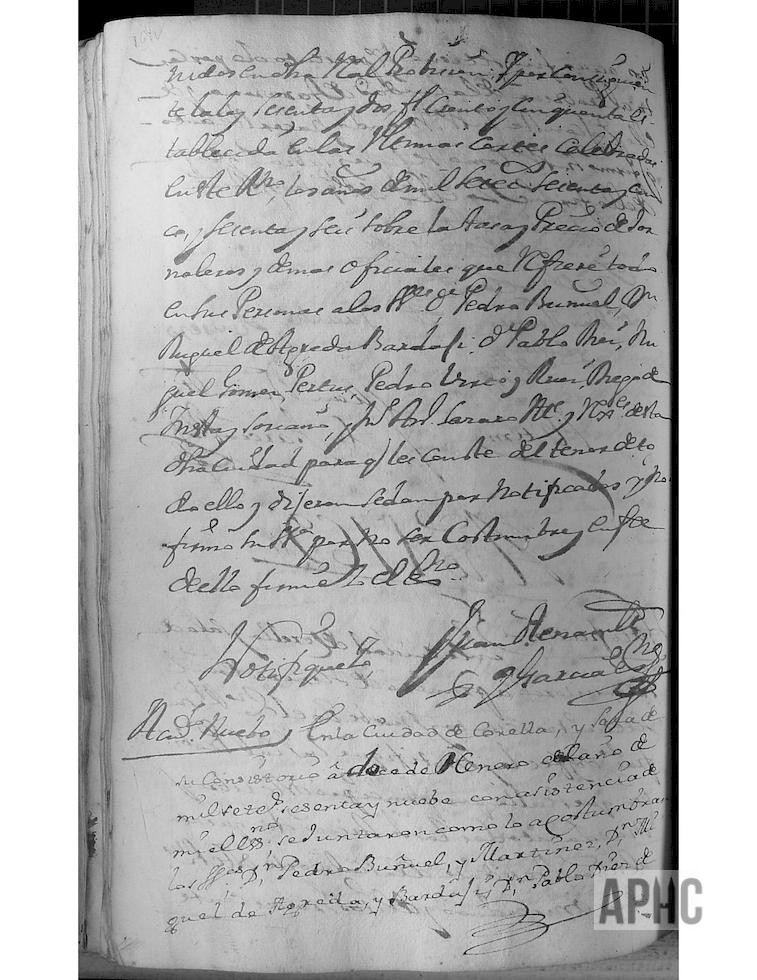 nidos en dha Real Provision, y por consiguien
te la ley sesenta y dos fl. Ciento y cinquenta es
tablecida en las ultimas Cortes Celebradas
en este Rno, los años de mil setecs sesenta y cin
co, y sesenta y seis sobre la tasa y Precio de Jor
naleros y demas oficiales que refiere todo
en sus Personas a los SSres Dn Pedro Buñuel, Dn
Miguel de Agreda Bardaji, Dn Pablo Mi
guel Pedro Virto y Diego de
y Soriano, y Rexres de esta
dha Ciudad para q les conste del tenor de to
do ello y dijeron se dan por Notificados y no
firmo su Sa por no ser Costumbre y en fee
de ello firmé Yo el Esno
Notifiquelo Juan
Garcia Esno
Nuebo En la Ciudad de Corella, y Sala de
su Consistorio â doce de Henero del año de
mil setes sesenta y nuebe con asistencia de
mi el Esno, se Juntaron como lo acostumbran
los SSres Dn Pedro Buñuel, y Martinez, Dn Mi
guel de Agreda, y Bardaji, Dn Pablo de
APHC